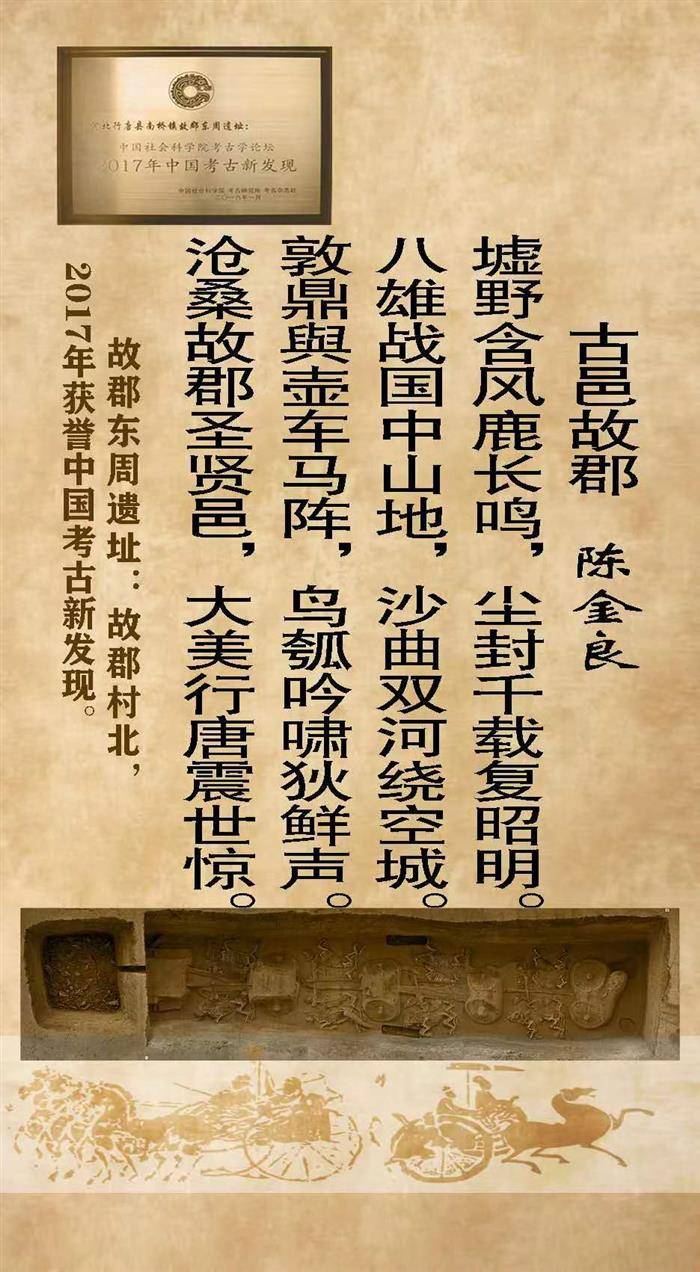 古邑故郡 陈金良
墟野含风鹿长鸣，尘封千载复昭明。
八雄战国中山地，沙曲双河绕空城。
敦鼎與壶车马阵，鸟瓠吟啸狄鲜声。
沧桑故郡圣贤邑，大美行唐震世惊。
故郡东周遗址：故郡村北，
2017年获誉中国考古新发现。
北行唐县南桥镇故郡东周遗址：
中国社会科学院考古学论坛
2017年中国考古新发现
中国社会科学院 考古研究所 考古杂志社
二〇一八年一月